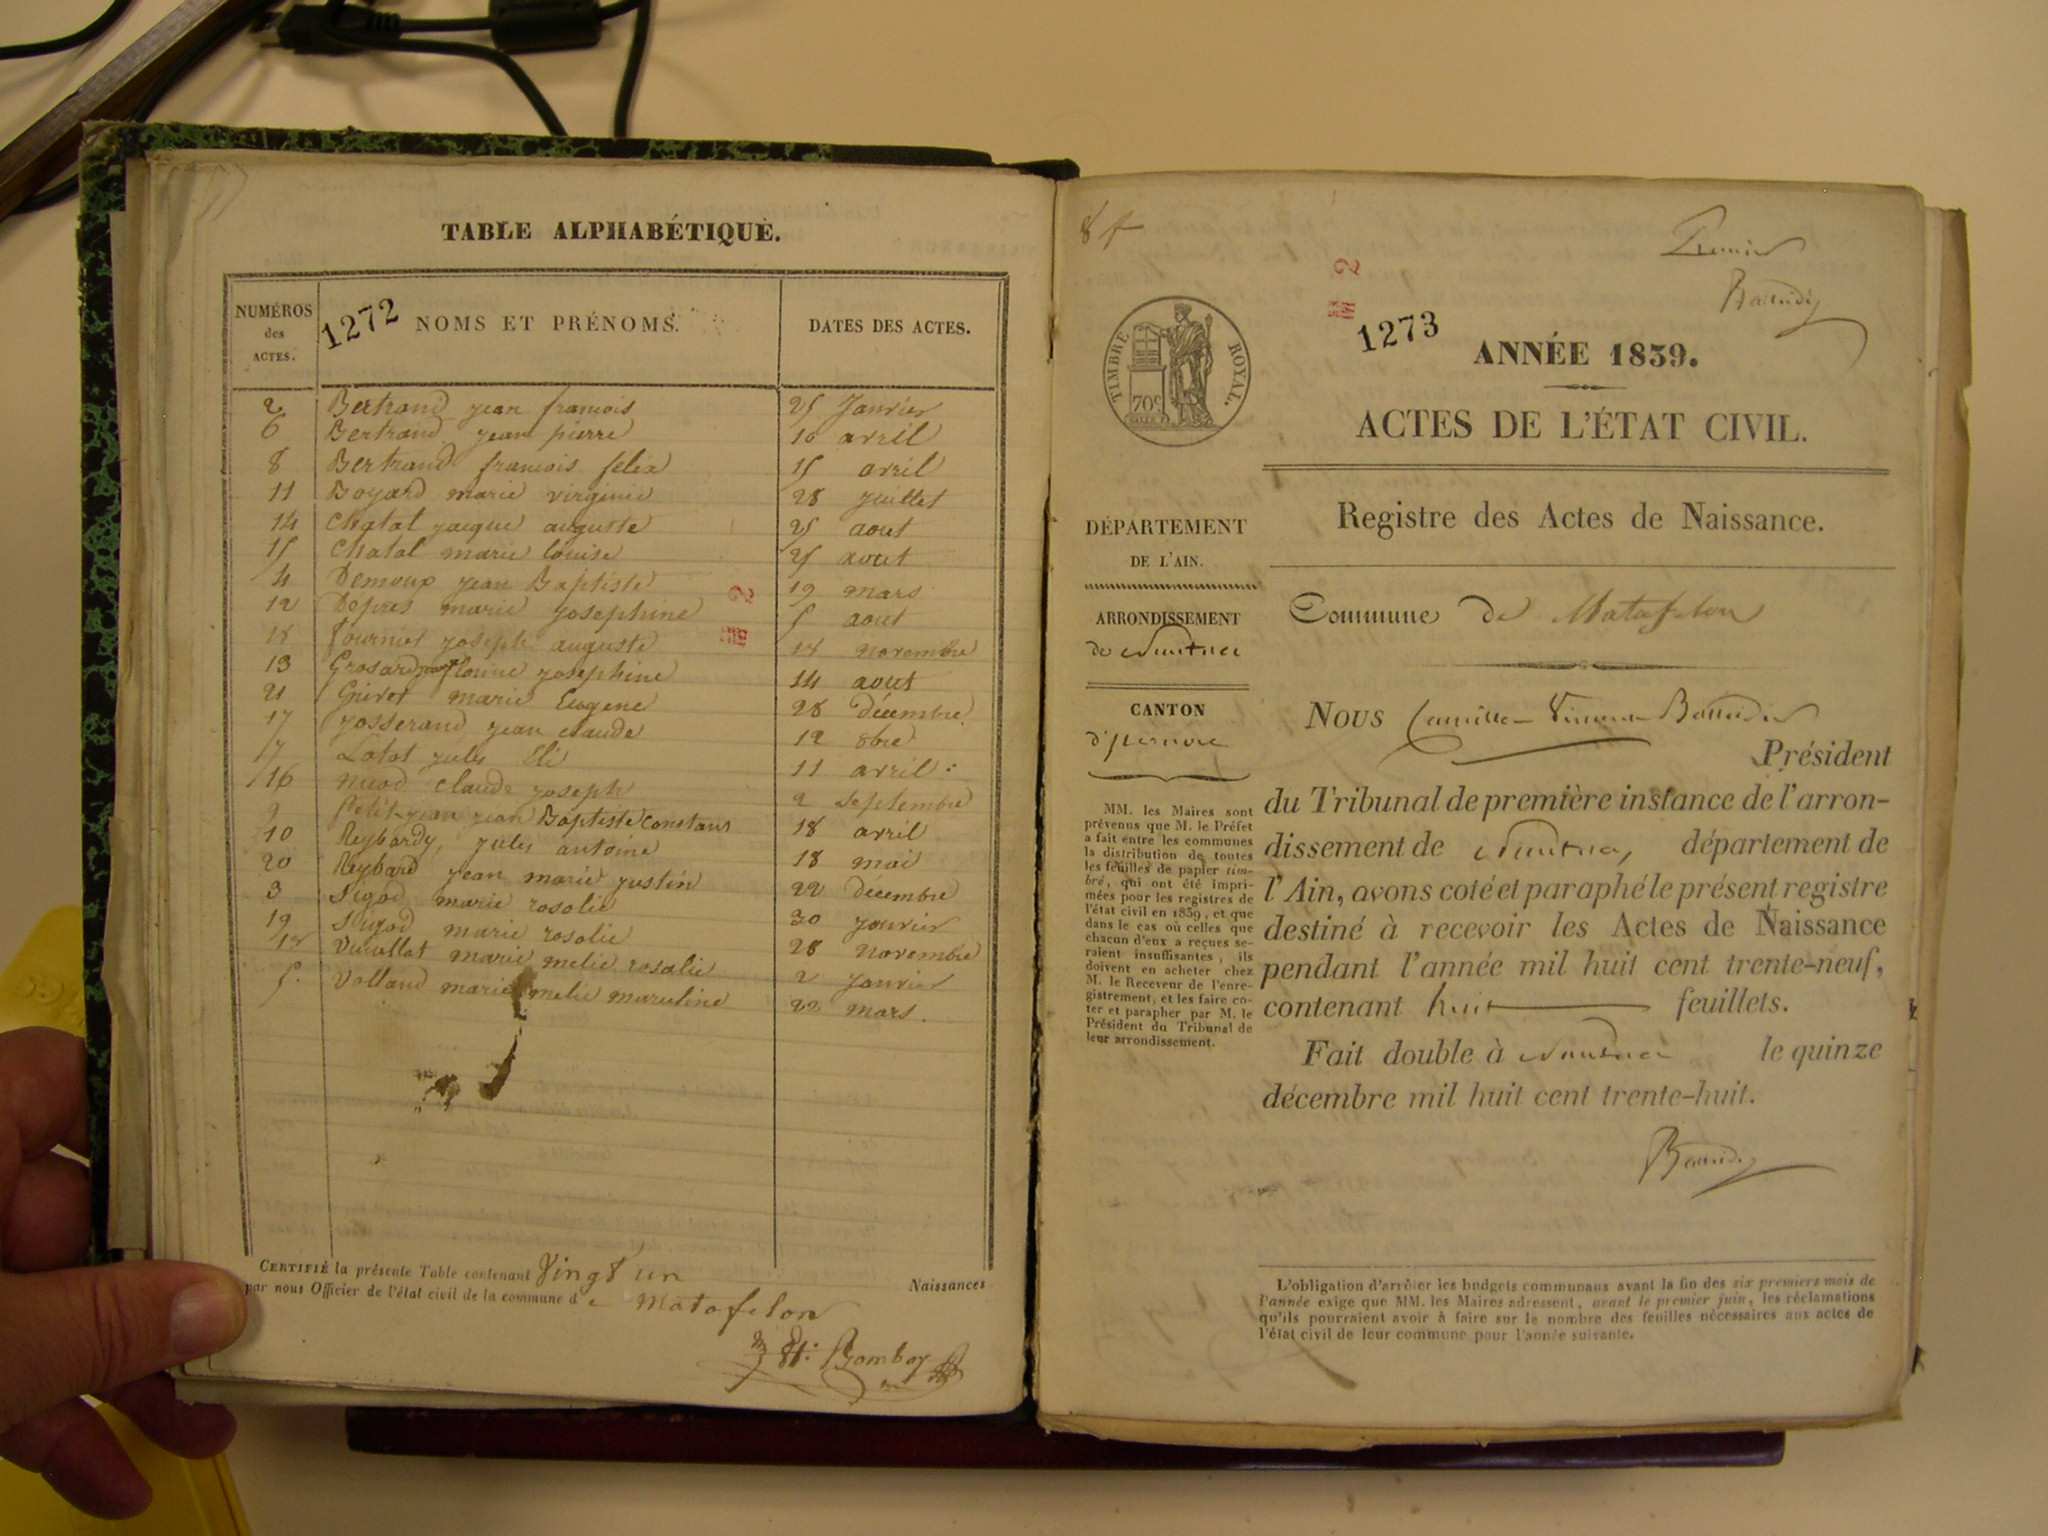 TABLE ALPHABÉTIQUE.
NUMÉROS des ACTES.
1272
NOMS ET PRÉNOMS.
DATES DES ACTES.
2 Bertrand jean francois 25 Janvier
6 Bertrand jean pierre 10 avril
8 Bertrand francois felix 15 avril
11 Boyard marie virginie 28 juillet
14 Chatal jacque auguste 25 aout
15 Chatal marie louise 25 aout
4 Demoux jean Baptiste 19 mars
12 Depres marie josephine 5 aout
18 fournier joseph auguste 18 novembre
13 Grosard josephine 14 aout
21 Grivet marie Eugene 28 décembre
17 Josserand jean claude 12 8bre
7 Latat jules Eli 11 avril
16 nuod claude joseph 2 septembre
9 Petit-jean jean Baptiste constans 18 avril
10 Reybardy, jules antoine 18 mai
20 Reybard jean marie justin 22 décembre
3 Sigod marie rosalie 30 janvier
19 Sigod marie rosalie 28 novembre
marie melie rosalie 2 janvier
5. Volland marie melie 22 mars.
CERTIFIÉ la présente Table contenant Vingt un Naissances
par nous Officier de l'état civil de la commune d e Matafelon
Bomboy
8 f
Premier
1273
TIMBRE ROYAL.
70c
ANNÉE 1839.
ACTES DE L'ÉTAT CIVIL.
Registre des Actes de Naissance.
DÉPARTEMENT
DE L'AIN.
ARRONDISSEMENT
de Nantua
CANTON
d'izernore
MM. les Maires sont
prévenus que M. le Préfet
a fait entre les communes
la distribution de toutes
les feuilles de papier tim-
bré, qui ont été impri-
mées pour les registres de
l'état civil en 1839, et que
dans le cas où celles que
chacun d'eux a reçues se-
raient insuffisantes, ils
doivent en acheter chez
M. le Receveur de l'enre-
gistrement, et les faire co-
ter et parapher par M. le
Président du Tribunal de
leur arrondissement.
Commune de Matafelon
Nous Camille Vincent
Président
du Tribunal de première instance de l'arron-
dissement de Nantua, département de
l'Ain, avons coté et paraphé le présent registre
destiné à recevoir les Actes de Naissance
pendant l'année mil huit cent trente-neuf,
contenant huit feuillets.
Fait double à Nantua le quinze
décembre mil huit cent trente-huit.
L'obligation d'arrêter les budgets communaux avant la fin des six premiers mois de
l'année exige que MM. les Maires adressent, avant le premier juin, les réclamations
qu'ils pourraient avoir à faire sur le nombre des feuilles nécessaires aux actes de
l'état civil de leur commune pour l'année suivante.